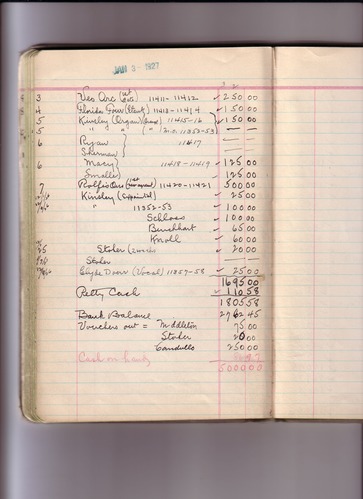 JAN 3 - 1927
3 Ves Orc 11411-11412 250 00
4 Florida Four 11413-11414 150 00
5 Kinsley (Organ) 11415-16 150 00
5 " " " 11352-53 — —
6 Ryan } 11417
Sherman
6 Macy } 11418-11419 125 00
Smalle 125 00
7 Rolfe's Orc 11420-11421 500 00
Kinsley 25 00
" 11352-53 100 00
Schloss 100 00
Burckhart 65 00
Knoll 60 00
25 Stoker 20 00
Stoker — —
Clyde Doerr (Vocal) 11357-58 25 00
1695 00
Petty Cash 110 58
1805 58
Bank Balance 2762 45
Vouchers out = Middleton 75 00
Stoker 20 00
250 00
Cash on hand
5000 00